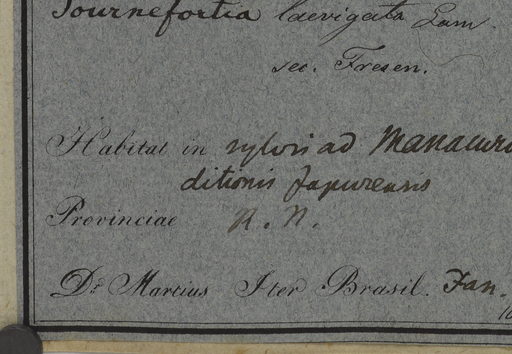 Tournefortia laevigata Lam.
sec. Fresen.
Habitat in sylvis ad Manacuru
ditionis Japurensis
Provinciae R. N.
Dr. Martius Iter Brasil. Jan.